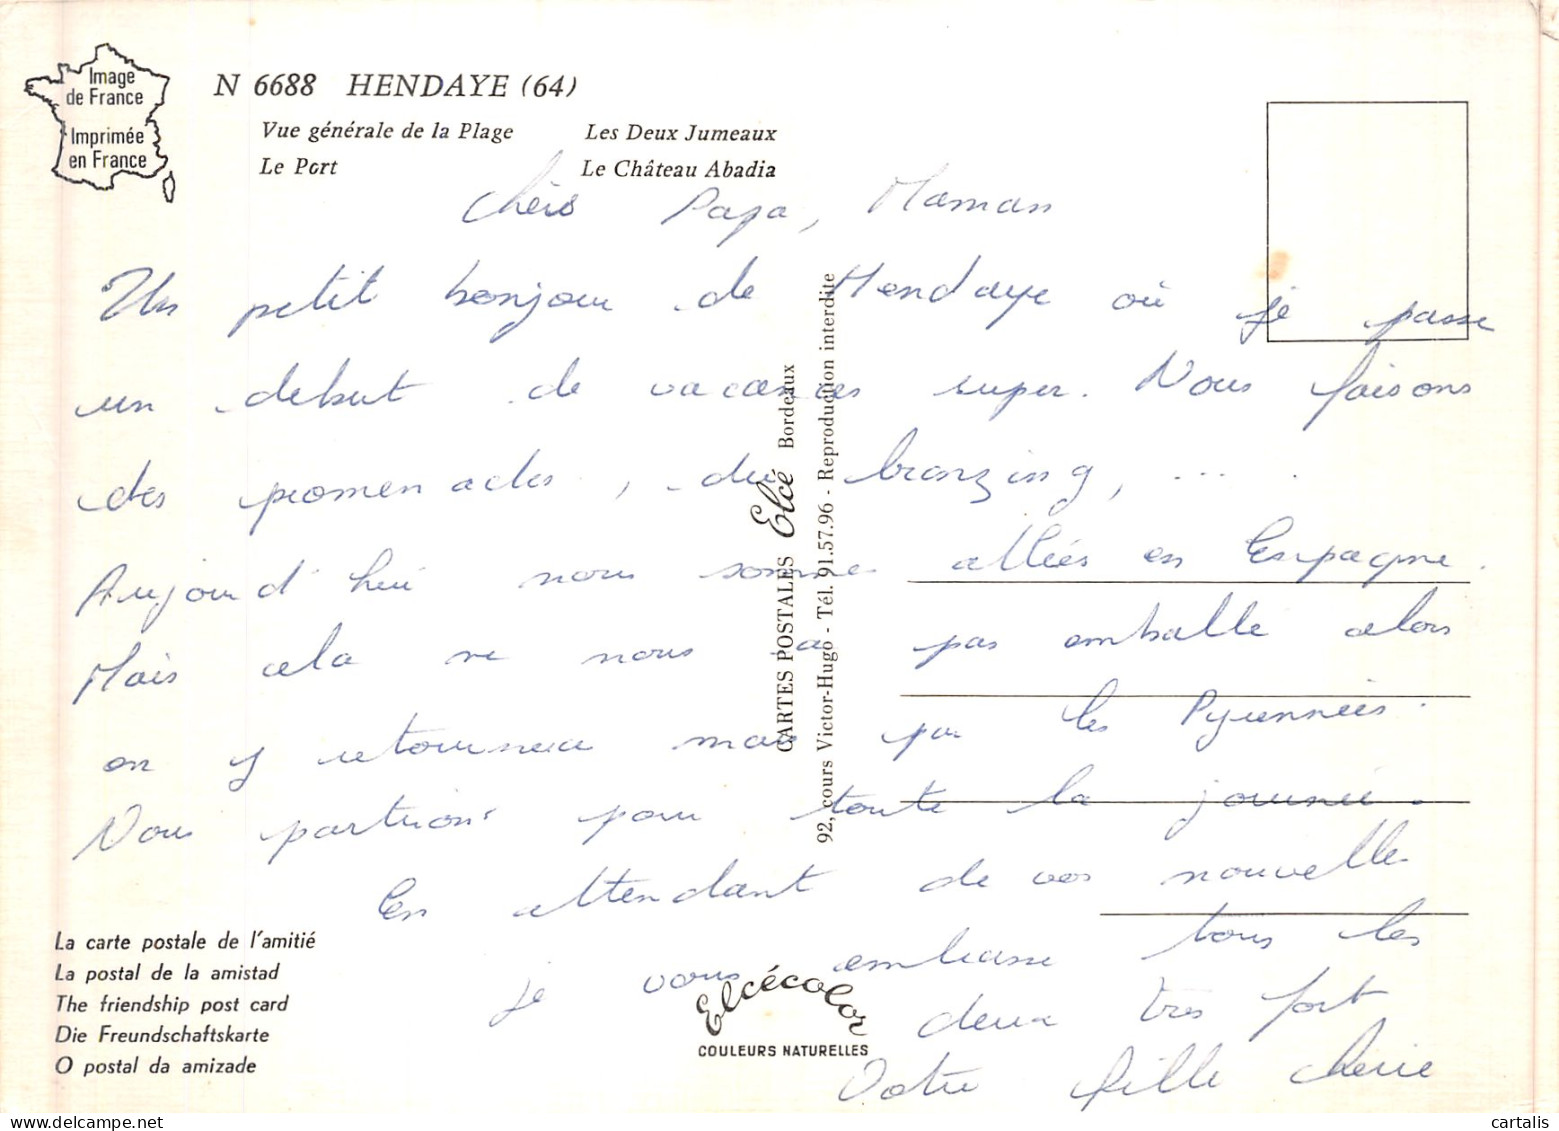 Image
de France
Imprimée
en France
N 6688 HENDAYE (64)
Vue générale de la Plage
Les Deux Jumeaux
Le Port
Le Château Abadia
Chers Papa, Maman
Un petit bonjour de Hendaye où je passe
un debut de vacances super. Nous faisons
des promenades, du bronzing, ....
Aujourd'hui nous sommes allées en Espagne.
Mais cela ne nous a pas emballé alors
on y retournera mais par les Pyrennées.
Nous partirions pour toute la journée.
En attendant de vos nouvelle
je vous embrasse tous les
deux très fort
Votre fille cherie
CARTES POSTALES Elcé Bordeaux
92, cours Victor-Hugo - Tél. 91.57.96 - Reproduction interdite
La carte postale de l'amitié
La postal de la amistad
The friendship post card
Die Freundschaftskarte
O postal da amizade
Elcécolor
COULEURS NATURELLES
cartalis